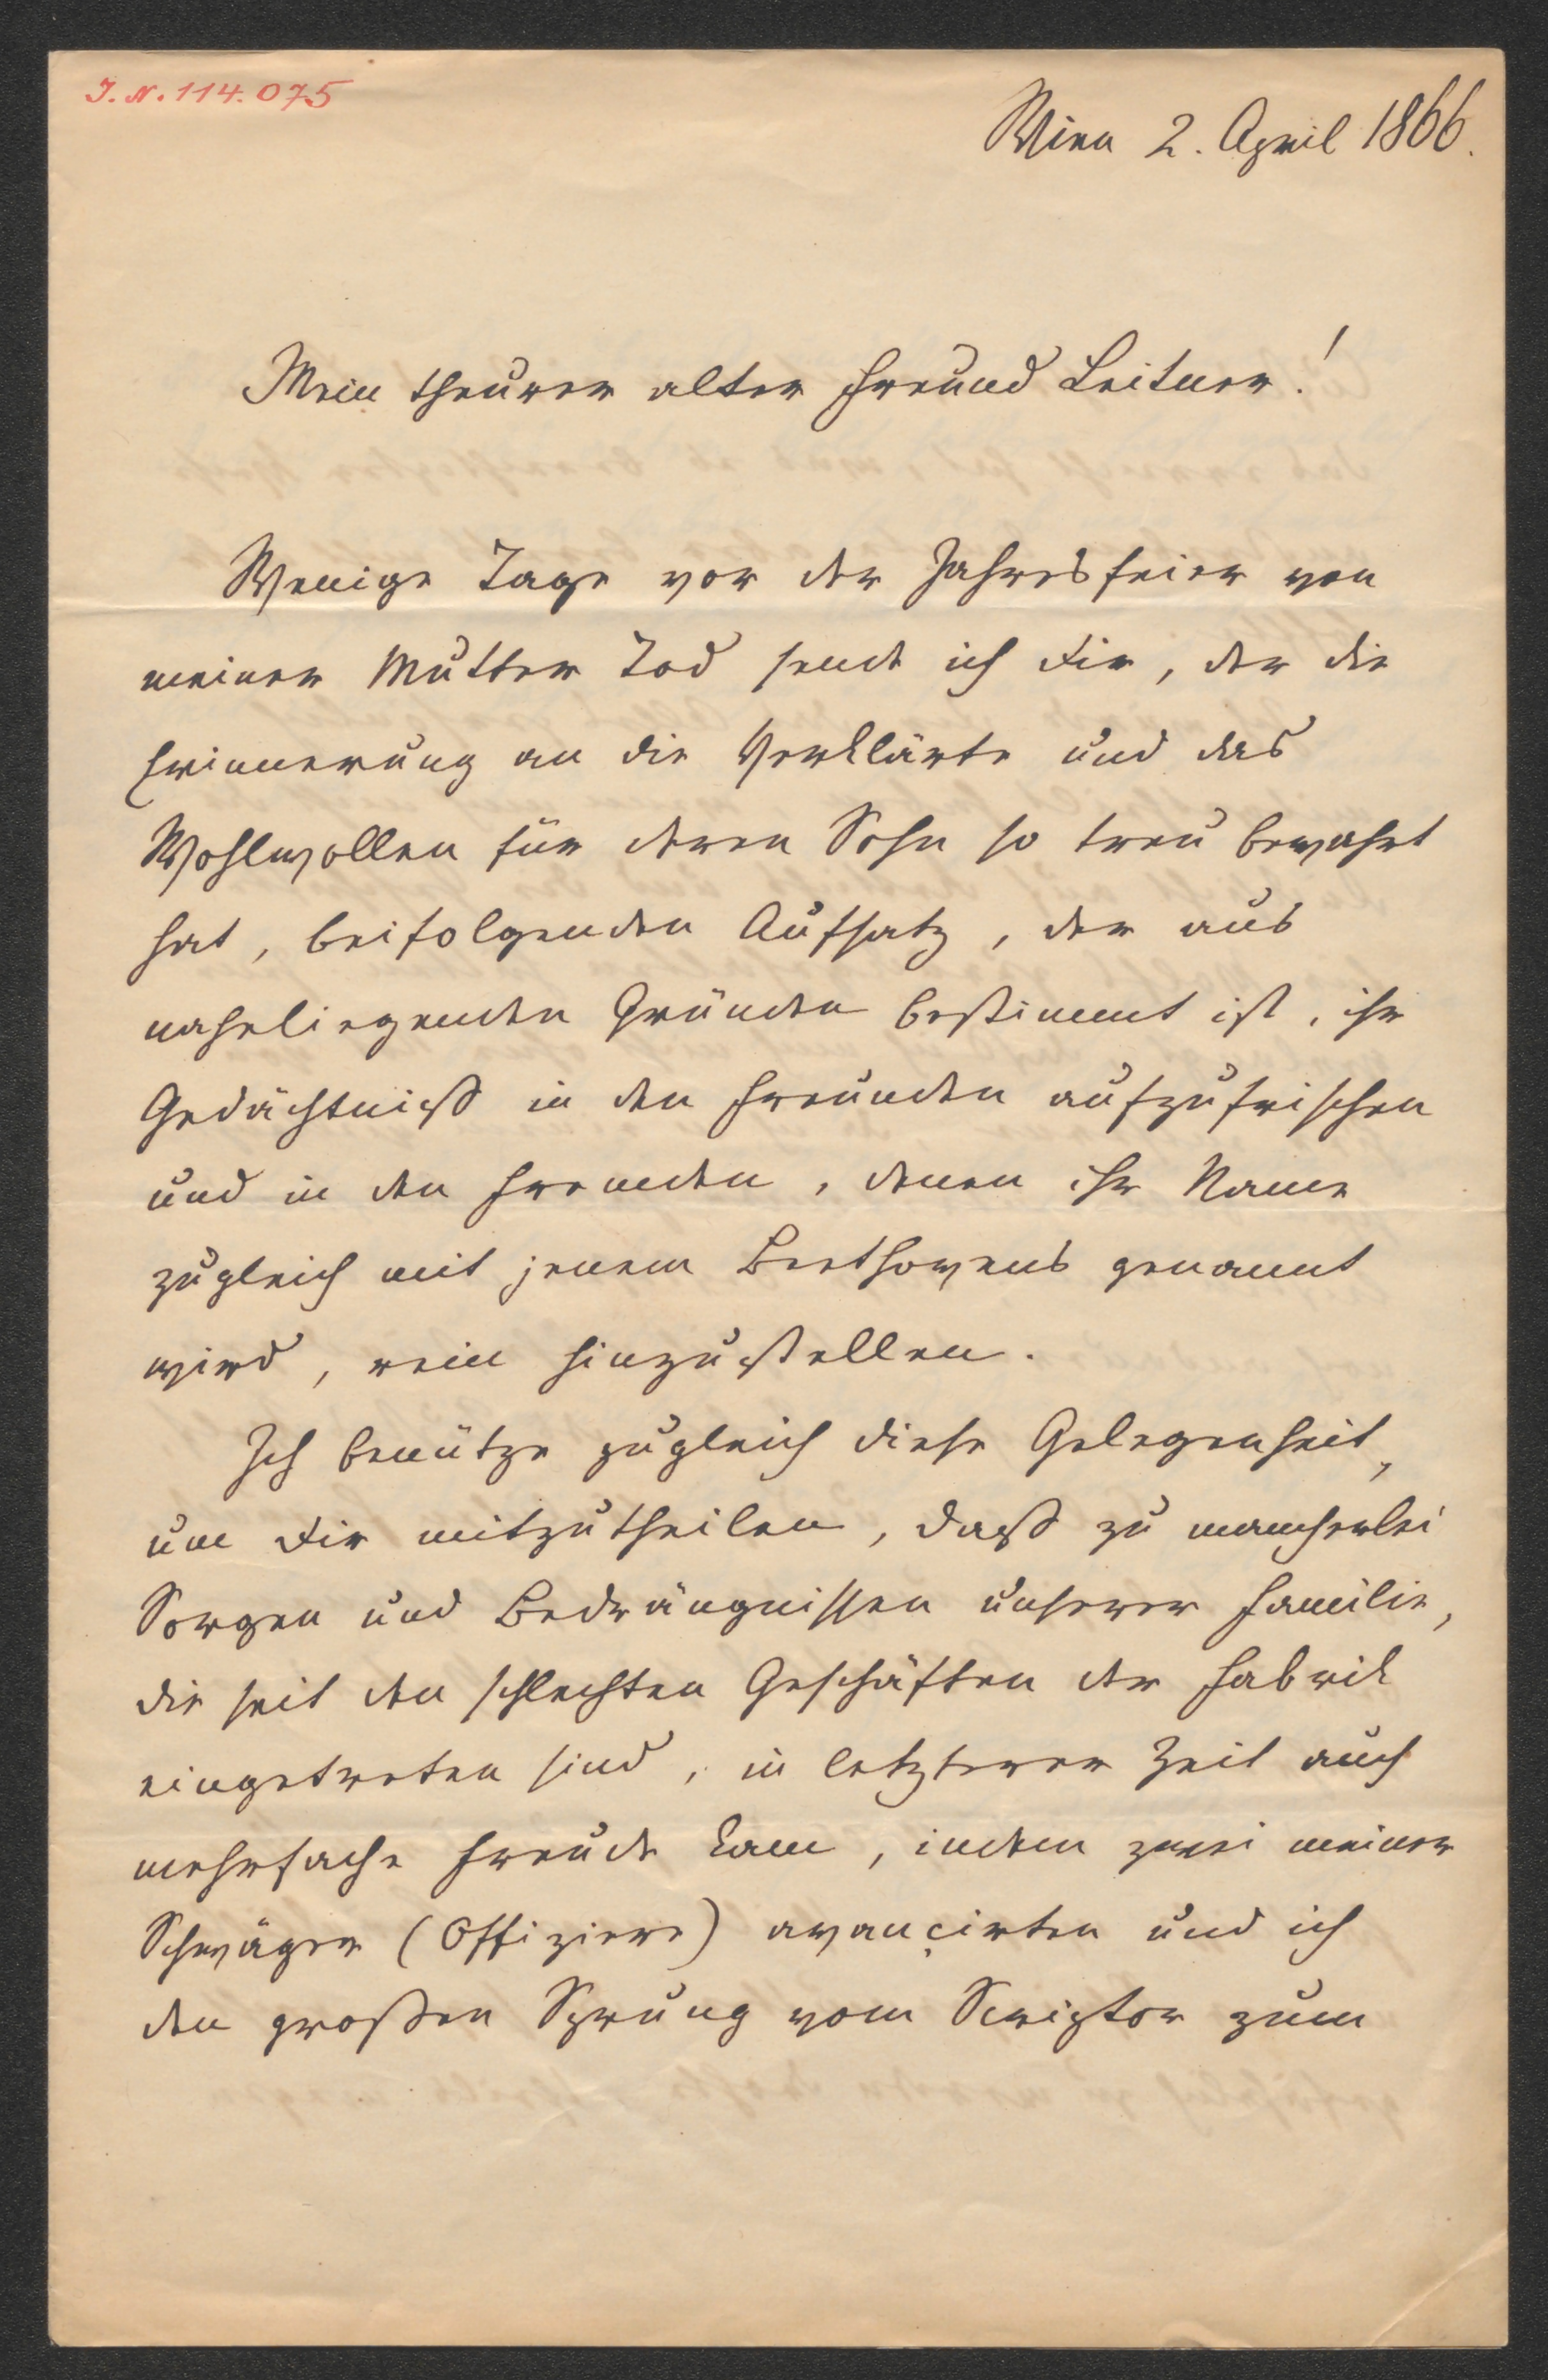 I. N. 114.075
Wien 2. April 1866.
Mein theurer alter Freund Leitner!
Wenige Tage vor der Jahresfeier von
meiner Mutter Tod sende ich Dir, der die
Erinnerung an die Verklärte und das
Wohlwollen für deren Sohn so treu bewahrt
hat, beifolgenden Aufsatz, der aus
naheliegenden Gründen bestimmt ist, ihr
Gedächtniß in den Freunden aufzufrischen
und in den Fremden, denen ihr Name
zugleich mit jenem Beethovens genannt
wird, rein hinzustellen.
Ich benütze zugleich diese Gelegenheit,
um Dir mitzutheilen, daß zu mancherlei
Sorgen und Bedrängnissen unserer Familie,
die seit den schlechten Geschäften der Fabrik
eingetreten sind, in letzterer Zeit auch
mehrfache Freude kam, indem zwei meiner
Schwäger (Offiziere) avançirten und ich
den großen Sprung vom Scriptor zum